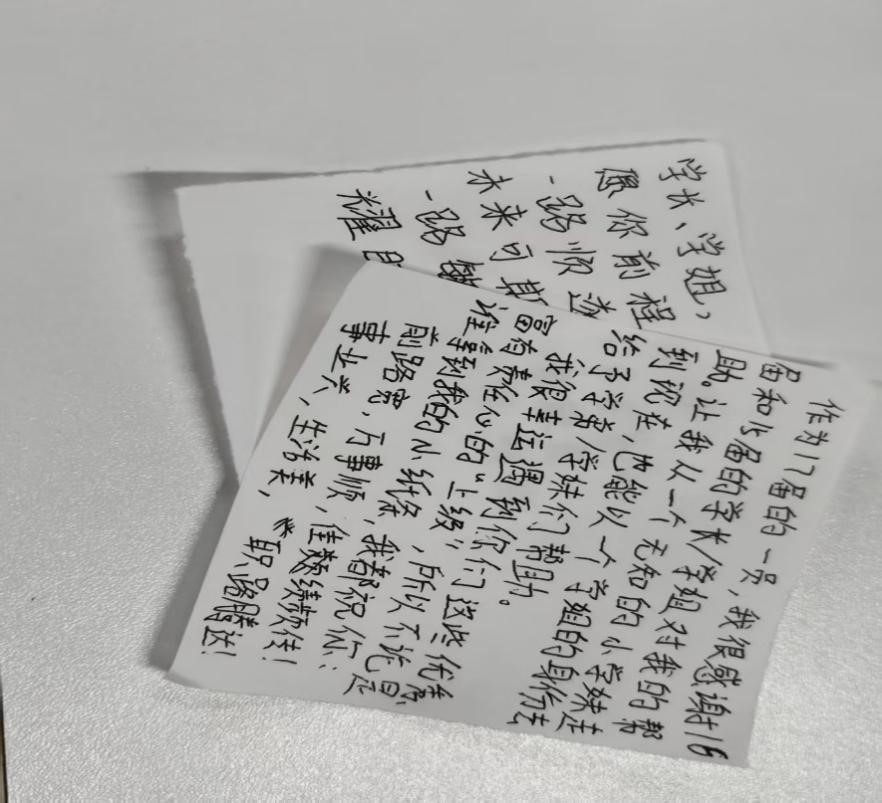 学长、学姐，
愿你前程
一路顺
未来可期
一路
耀
作为17届的一员，我很感谢16
届和15届的学长/学姐对我的帮
助。让我从一个无知的小学妹走
到现在，也能以一个学姐的身份去
给予学弟/学妹们帮助。
我很幸运遇到你们这些优秀、
富有责任心的“上级”，所以不论是
谁拿到我的小纸条，我都祝你：
前路宽，万事顺，佳绩频传！
事业兴，生活美，职路腾达！